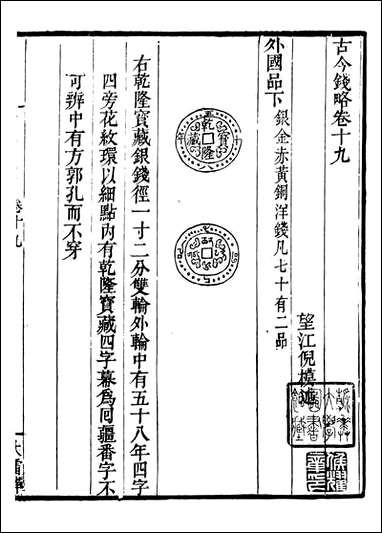 古今錢略卷十九
望江倪模述
外國品下 銀金赤黃銅洋錢凡七十有二品
乾隆寶藏
右乾隆寶藏銀錢徑一寸二分雙輪外輪中有五十八年四字
四旁花紋環以細點內有乾隆寶藏四字幕爲回疆番字不
可辨中有方郭孔而不穿